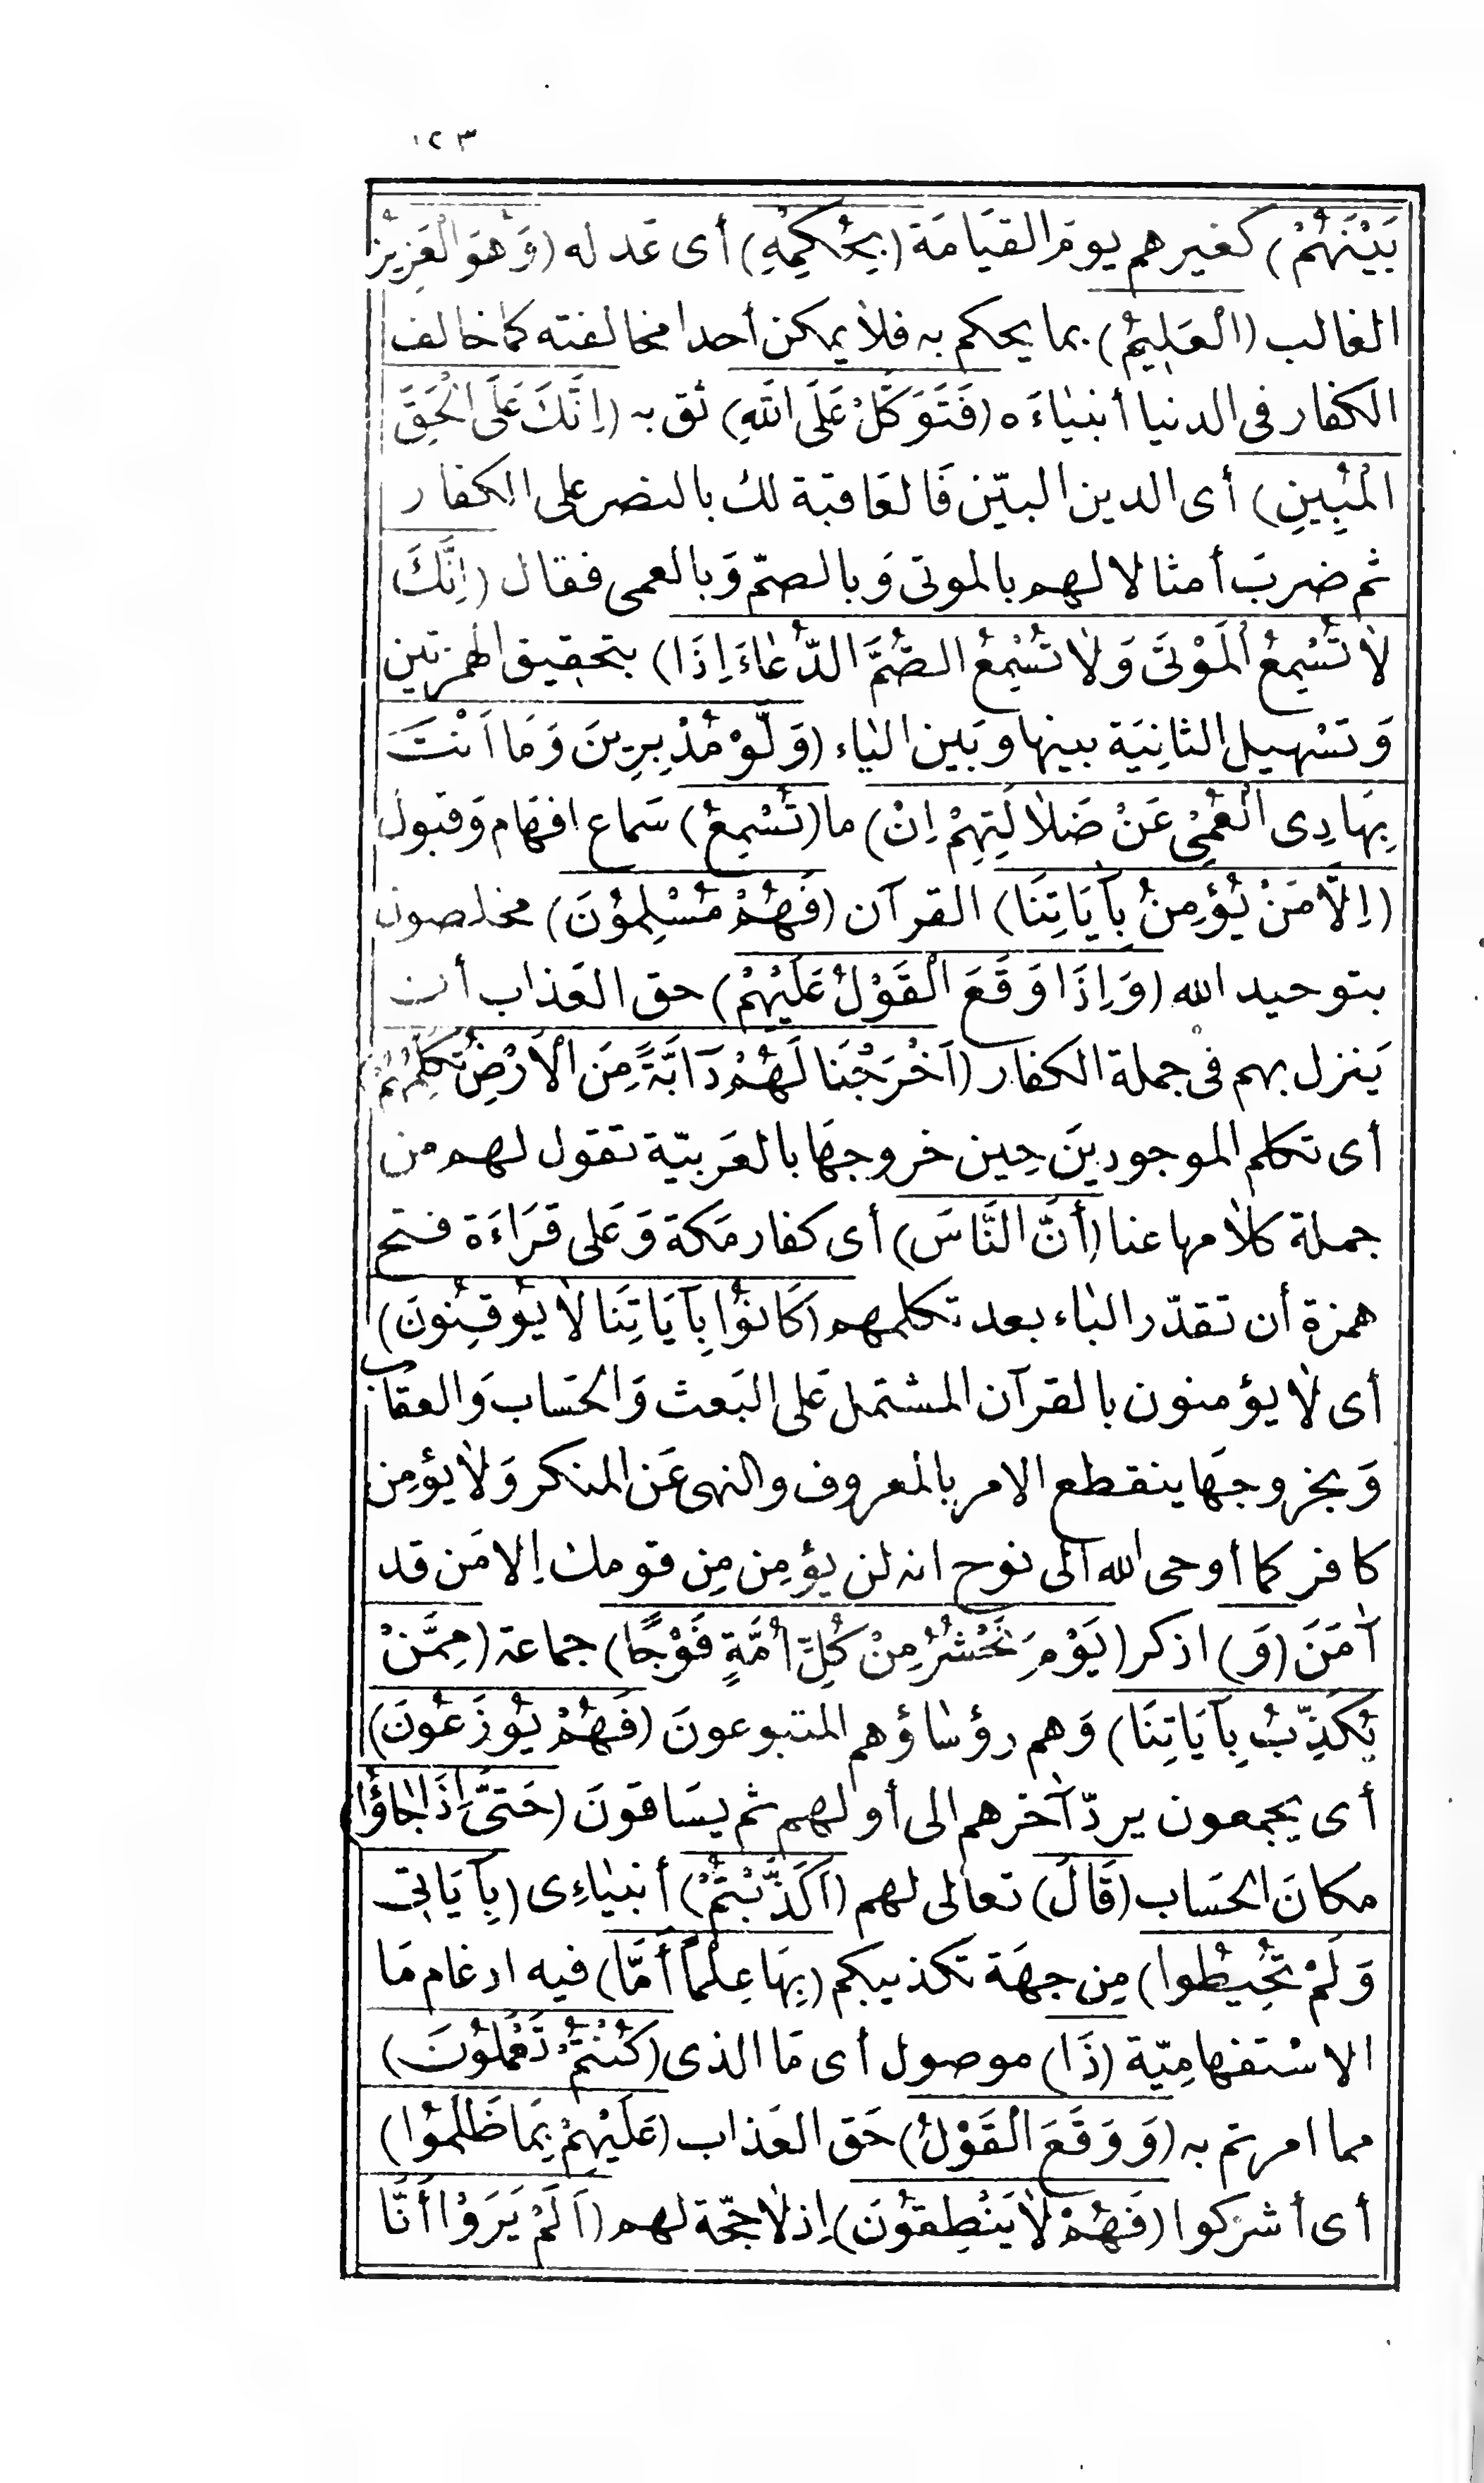 ١٢٣
بَيْنَهُمْ) كغيرهم يومَ القيَامَة (بِحُكْمِهِ) أى عَدله (وَهُوَ الْعَزِيزُ
الغالب (الْعَلِيمُ) بما يحكم به فلا يمكن أحدا مخالفته كما خالف
الكفار فى الدنيا أنبيَاءَه (فَتَوَكَّلْ عَلَى اللَّهِ) ثق به (اِنَّكَ عَلَى الْحَقِّ
الْمُبِينِ) أى الدين البيّن فَالعَاقبَة لك بالنصر على الكفار
ثم ضربَ أمثالا لهم بالموتى وَبالصمّ وَبالعمى فقال (اِنَّكَ
لَا تُسْمِعُ الْمَوْتَى وَلَا تُسْمِعُ الصُّمَّ الدُّعَاءَ اِذَا) بتحقيق الهمزتين
وَتسْهيل الثانِيَة بينها وبَين اليَاء (وَلَّوْ مُدْبِرِينَ وَمَا اَنْتَ
بِهَادِى الْعُمْىِ عَنْ ضَلَالَتِهِمْ اِنْ) ما (تُسْمِعُ) سَماع افهَام وَقبول
(اِلَّا مَنْ يُؤْمِنُ بِآيَاتِنَا) القرآن (فَهُمْ مُسْلِمُونَ) مخلصون
بتوحيد الله (وَاِذَا وَقَعَ الْقَوْلُ عَلَيْهِمْ) حق العَذاب أن
يَنزل بهم فى جملة الكفار (اَخْرَجْنَا لَهُمْ دَآبَّةً مِنَ الْاَرْضِ تُكَلِّمُهُمْ)
أى تكلم الموجودينَ حِين خروجهَا بالعَربيّة تقول لهم من
جملة كلامها عنا (أَنَّ النَّاسَ) أى كفار مَكة وَعَلى قرَاءَة فتح
همزة أن تقدّر البَاء بعد تكلمهم (كَانُوا بِآيَاتِنَا لَا يُوقِنُونَ)
أى لَا يؤمنون بالقرآن المشتمل عَلى البَعث وَالحسَاب وَالعقاب
وَبخروجهَا ينقطع الامر بالمعروف والنهى عَن المنكر وَلَا يؤمِن
كافر كما أوحى الله الى نوح انه لن يؤمِن مِن قومك اِلا مَن قد
آمَنَ (وَ) اذكر (يَوْمَ نَحْشُرُ مِنْ كُلِّ اُمَّةٍ فَوْجًا) جماعة (مِمَّنْ
يُكَذِّبُ بِآيَاتِنَا) وَهم رؤسَاؤهم المتبوعونَ (فَهُمْ يُوزَعُونَ)
أى يجمعون يردّ آخرهم الى أولهم ثم يسَاقونَ (حَتَّى اِذَا جَاؤُا)
مكانَ الحسَاب (قَالَ) تعالى لهم (اَكَذَّبْتُمْ) أنبيَاءِى (بِآيَاتِى
وَلَمْ تُحِيطُوا) مِن جهَة تكذيبكم (بِهَا عِلْمًا أَمَّا) فيه ادغام مَا
الاسْتفهامِيّة (ذَا) موصول أى مَا الذى (كُنْتُمْ تَعْمَلُونَ)
مما امرتم به (وَوَقَعَ الْقَوْلُ) حَق العَذاب (عَلَيْهِمْ بِمَا ظَلَمُوا)
أى أشركوا (فَهُمْ لَا يَنْطِقُونَ) اِذ لَا حجّة لهم (اَلَمْ يَرَوْا أَنَّا